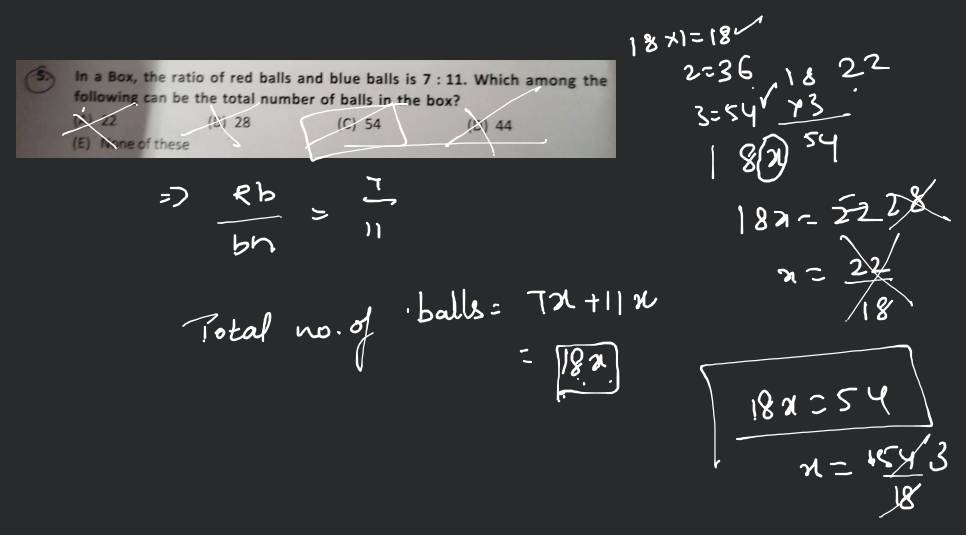 5. In a Box, the ratio of red balls and blue balls is 7 : 11. Which among the
following can be the total number of balls in the box?
(A) 22 (B) 28 (C) 54 (D) 44
(E) None of these
=> Rb/bn = 7/11
Total no. of balls = 7x + 11x
= 18x
18 x 1 = 18 ✓
2 = 36
3 = 54 ✓
18
x3
54
22
18x
18x = 22 28
x = 22/18
18x = 54
x = 54/18 3